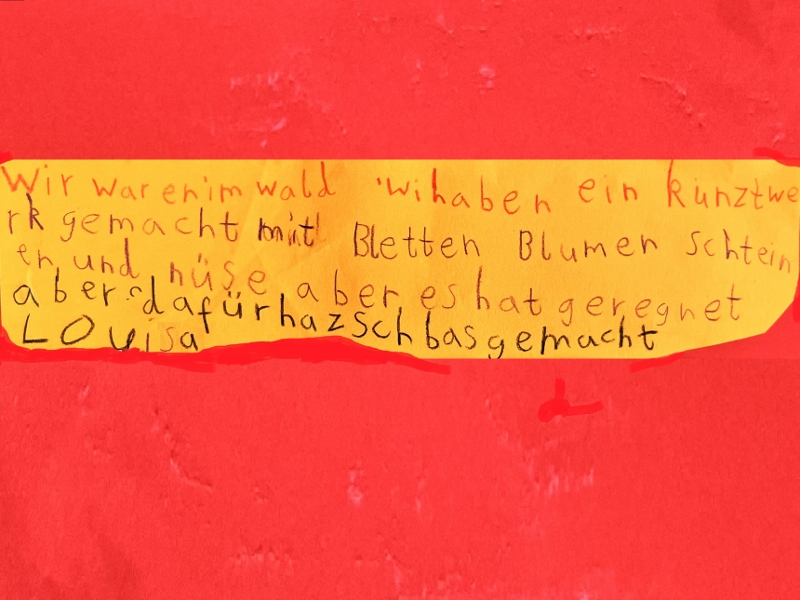 Wir waren im wald wihaben ein künztwe
rk gemacht mit Bletten Blumen Schtein
en und nüse aber es hat geregnet
aber dafür haz Schbas gemacht
Louisa